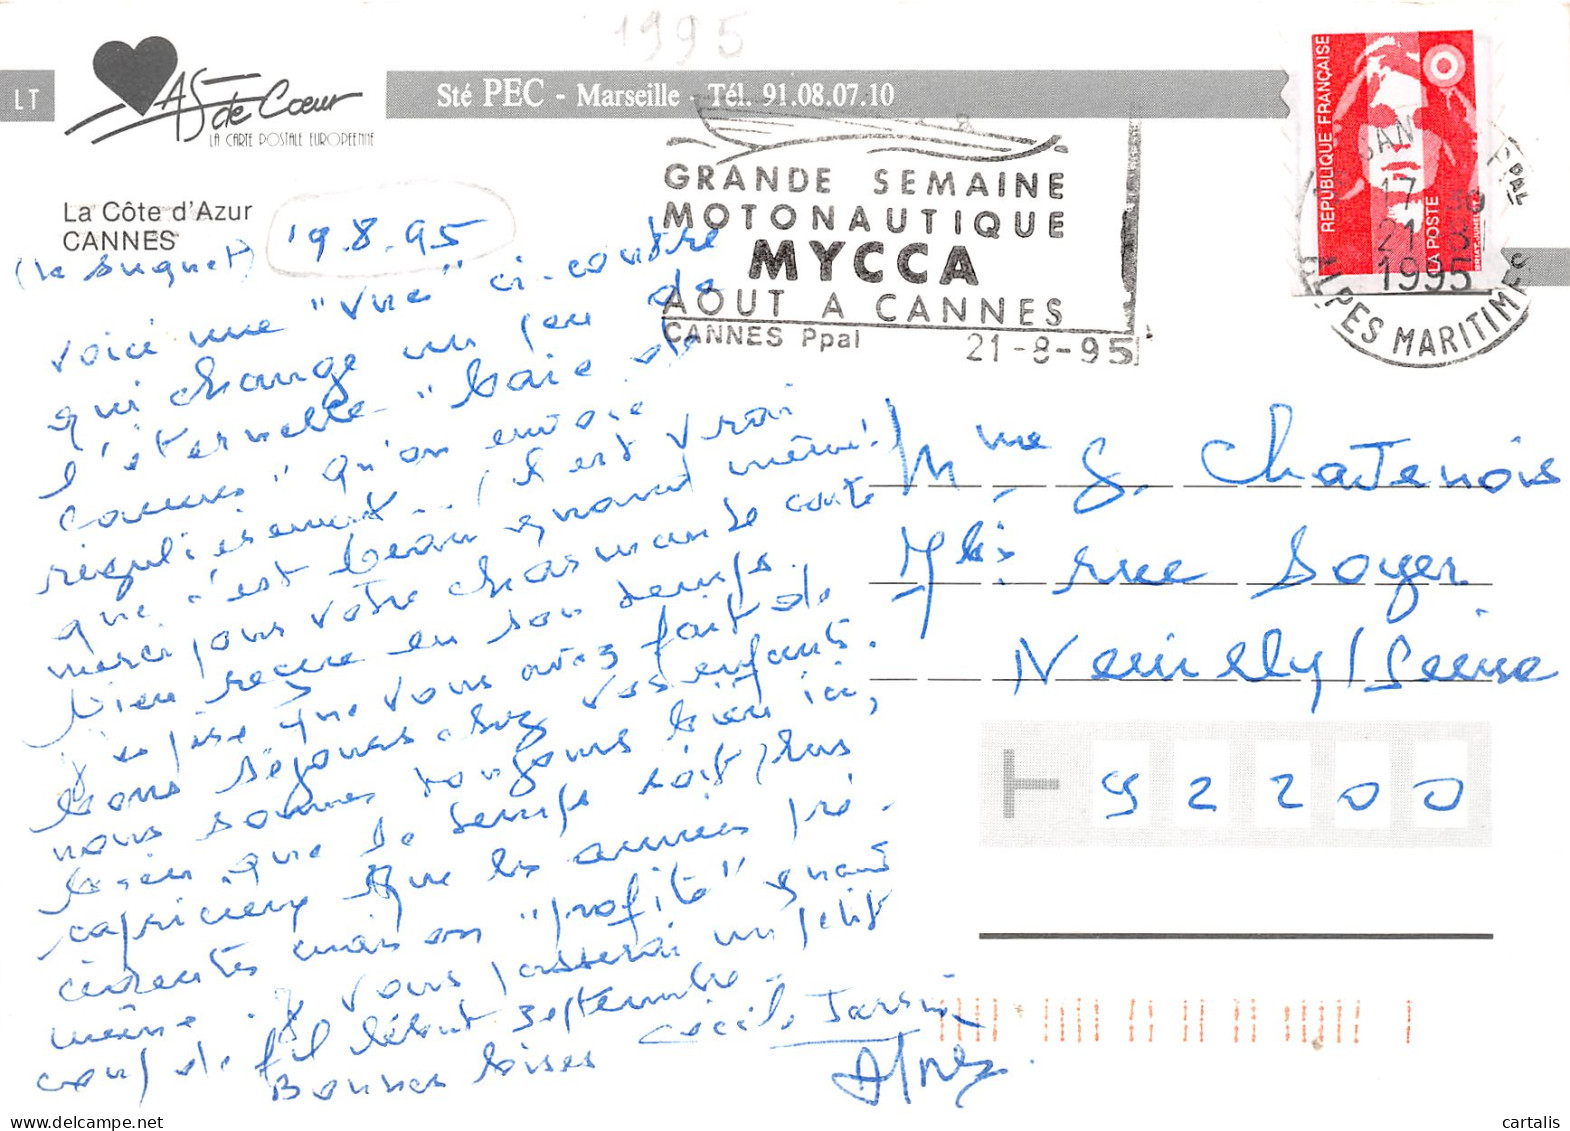 1995
LT
As de Cœur
LA CARTE POSTALE EUROPÉENNE
Sté PEC - Marseille - Tél. 91.08.07.10
La Côte d'Azur
CANNES
(Le Suquet) 19.8.95
GRANDE SEMAINE
MOTONAUTIQUE
MYCCA
AOUT A CANNES
CANNES Ppal 21-8-95
RÉPUBLIQUE FRANÇAISE
LA POSTE
17
21 8
1995
ALPES MARITIMES
Voici une "vue" ci-contre
qui change un peu de
l'éternelle "baie de
Cannes" qu'on envoie
régulièrement.. (il est vrai
que c'est beau quand même!
merci pour votre charmante carte
bien reçue en son temps.
J'espère que vous avez fait de
bons séjours chez vos enfants.
nous sommes toujours bien ici,
bien que le temps soit plus
capricieux que les années pré-
cédentes mais on "profite" quand
même. Je vous passerai un petit
coup de fil début septembre -
Bonnes bises Cécile
Mme S. Chatenois
7bis rue Soyer
Neuilly/Seine
92200
cartalis.com